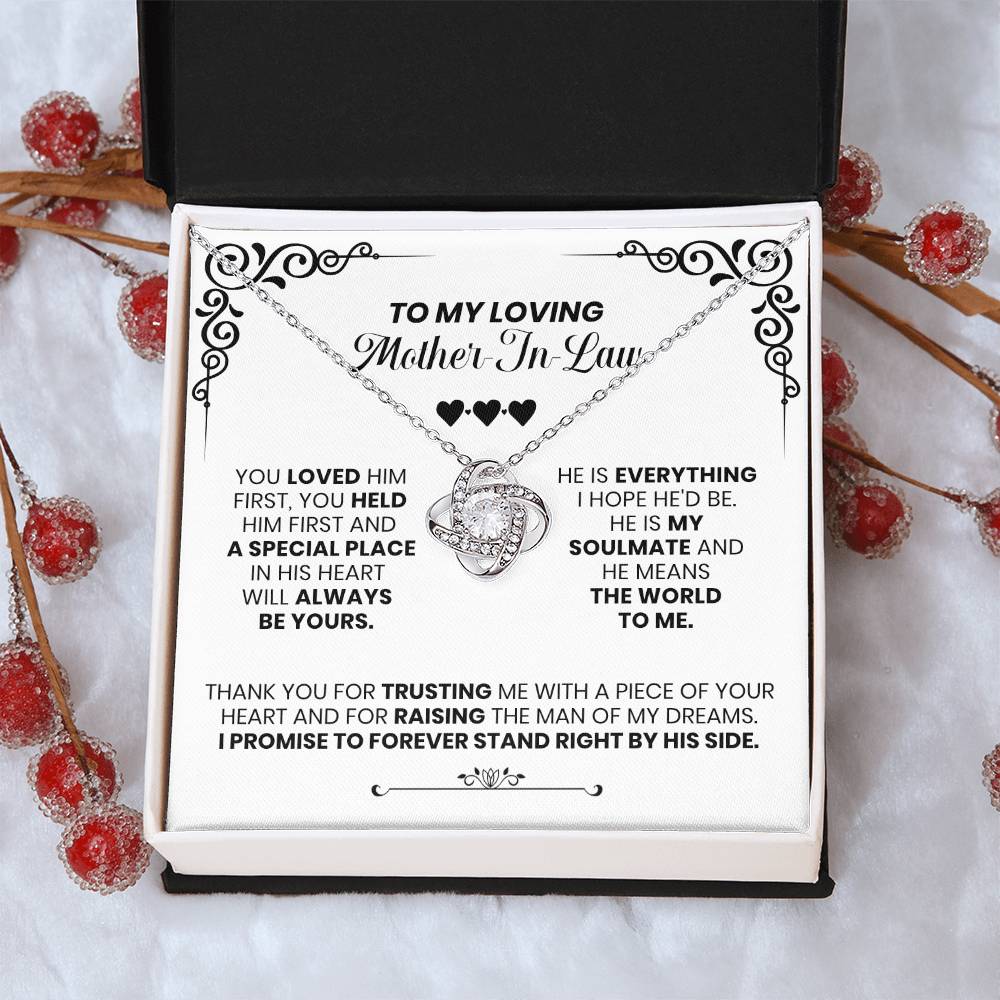 TO MY LOVING
Mother-In-Law
YOU LOVED HIM
FIRST, YOU HELD
HIM FIRST AND
A SPECIAL PLACE
IN HIS HEART
WILL ALWAYS
BE YOURS.
HE IS EVERYTHING
I HOPE HE'D BE.
HE IS MY
SOULMATE AND
HE MEANS
THE WORLD
TO ME.
THANK YOU FOR TRUSTING ME WITH A PIECE OF YOUR
HEART AND FOR RAISING THE MAN OF MY DREAMS.
I PROMISE TO FOREVER STAND RIGHT BY HIS SIDE.